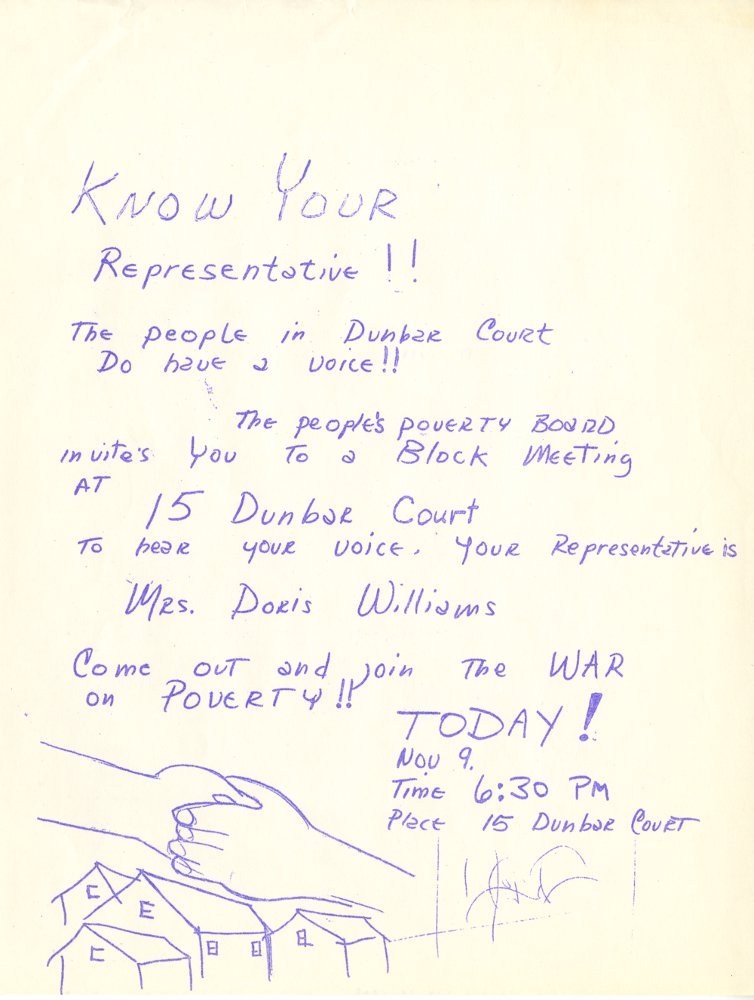 Know Your
Representative!!
The people in Dunbar Court
Do have a voice!!
The people's poverty Board
invite's You To a Block Meeting
AT
15 Dunbar Court
To hear your voice. Your Representative is
Mrs. Doris Williams
Come out and join The WAR
on POVERTY!!
TODAY!
Nov 9.
Time 6:30 PM
Place 15 Dunbar Court